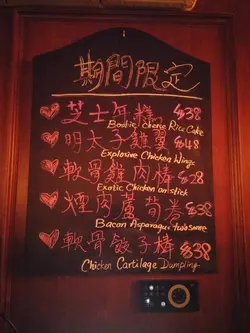 期間限定
芝士年糕 $38
Bonbie cheese Rice Cake
明太子雞翼 $48
Explosive Chicken Wings
軟骨雞肉棒 $28
Exotic Chicken on stick
煙肉蘆筍卷 $38
Bacon Asparagus
軟骨餃子棒 $38
Chicken Cartilage Dumpling